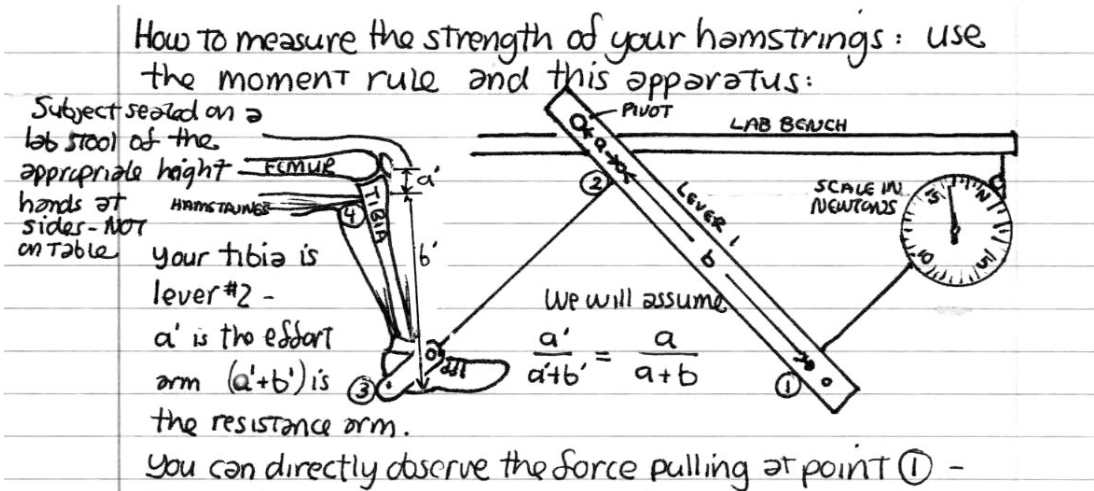 How to measure the strength of your hamstrings: use
the moment rule and this apparatus:
Subject seated on a
lab stool of the
appropriate height
hands at
sides - NOT
on table
FEMUR
HAMSTRINGS
TIBIA
4
a'
b'
PIVOT
a
2
LEVER 1
b
1
LAB BENCH
SCALE IN
NEWTONS
your tibia is
lever #2 -
a' is the effort
arm (a'+b') is
the resistance arm.
3
We will assume
a'/a'+b' = a/a+b
You can directly observe the force pulling at point ① -